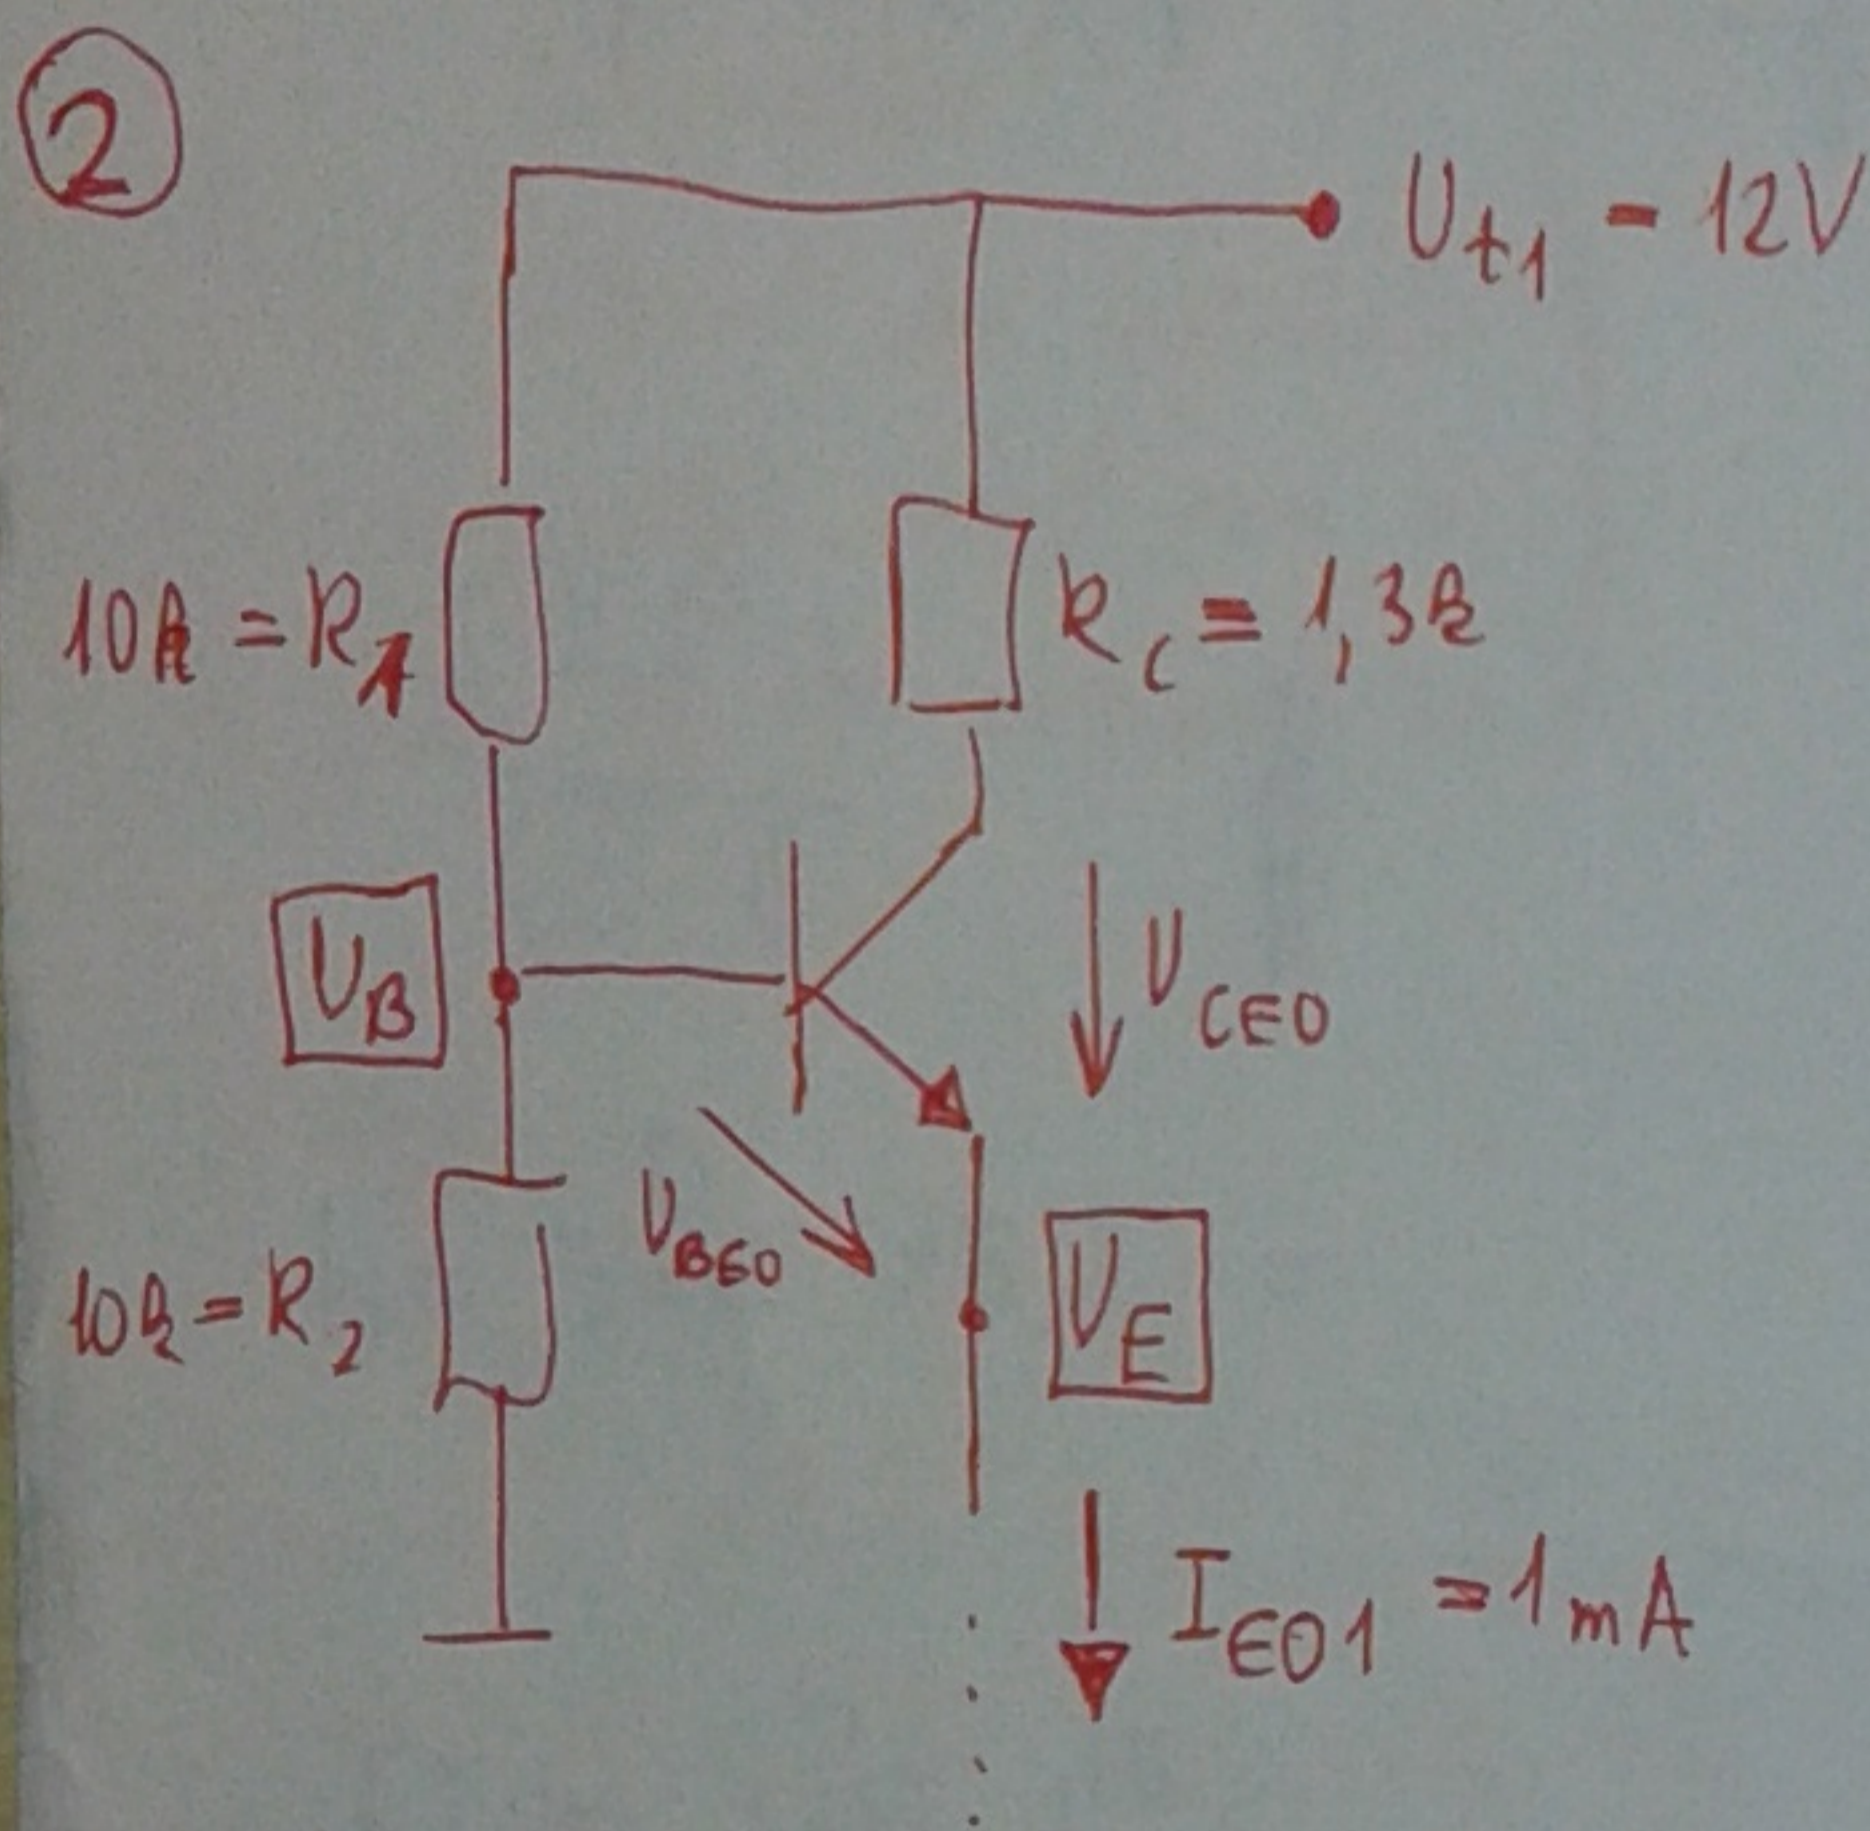 2
U_t1 - 12V
10k = R_1
R_C = 1,3k
U_B
U_CEO
U_BEO
10k = R_2
U_E
I_EO1 = 1mA